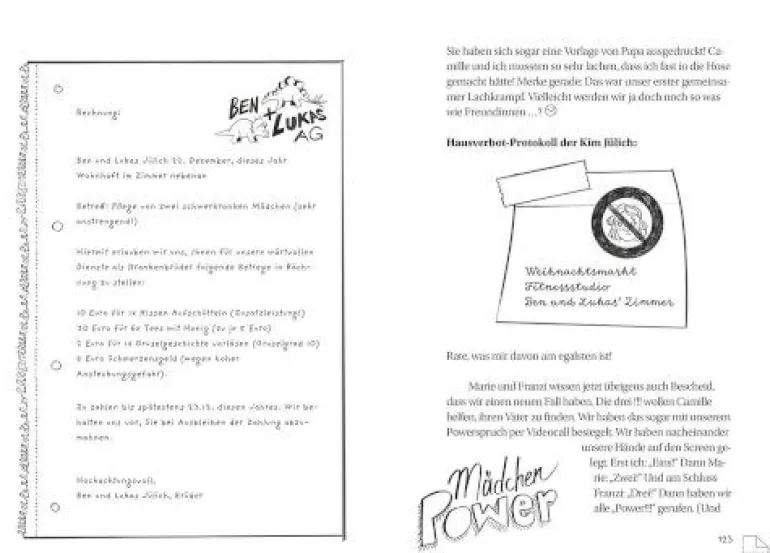 BEN + LUKAS AG
Rechnung:
Ben und Lukas Jülich 22. Dezember, dieses Jahr
Wohnhaft im Zimmer nebenan
Betreff: Pflege von zwei schwerkranken Mädchen (sehr
anstrengend!)
Hiermit erlauben wir uns, Ihnen für unsere wärtvollen
Dienste als Krankenbrüder folgende Betrege in Räch-
nung zu stellen:
10 Euro für 1x Kissen Aufschütteln
Euro für 6x Tees mit Honig (zu je 5 Euro)
Euro für 1x Gruselgeschichte vorlesen (Gruselgrad 10)
Euro Schmerzensgeld (wegen hoher
Ansteckungsgefahr).
Zu zahlen bis spätestens 23.12. diesen Jahres. Wir be-
halten uns vor, Sie bei Ausbleiben der Zahlung abzu-
mahnen.
Hochachtungsvoll,
Ben und Lukas Jülich, Brüder
Sie haben sich sogar eine Vorlage von Papa ausgedruckt! Ca-
mille und ich mussten so sehr lachen, dass ich fast in die Hose
gemacht hätte! Merke gerade: Das war unser erster gemeinsa-
mer Lachkrampf. Vielleicht werden wir ja doch noch so was
wie Freundinnen …?
Hausverbot-Protokoll der Kim Jülich:
Weihnachtsmarkt
Fitnessstudio
Ben und Lukas' Zimmer
Rate, was mir davon am egalsten ist!
Marie und Franzi wissen jetzt übrigens auch Bescheid,
dass wir einen neuen Fall haben. Die drei !!! wollen Camille
helfen, ihren Vater zu finden. Wir haben das sogar mit unserem
Powerspruch per Videocall besiegelt. Wir haben nacheinander
unsere Hände auf den Screen ge-
legt. Erst ich: „Eins!" Dann Ma-
rie: „Zwei!" Und am Schluss
Franzi: „Drei!" Dann haben wir
alle „Power!!!" gerufen. (Und
Mädchen
Power
123